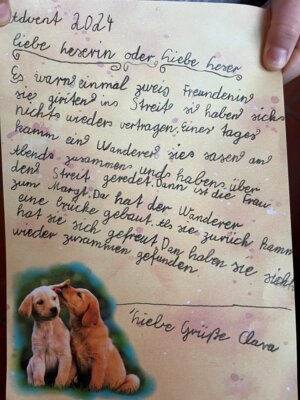 Advent 2024
liebe leserin oder liebe leser
Es warn einmal zwei Freundenin
sie giriten ins Streit si haben sich
nichts wieders vertragen, Eines tages
kamm ein Wanderer sies sasen am
Abends zusammen unds habens über
den Streit geredet. Dann ist die Frau
zum Margt. Da hat der Wanderer
eine Brücke gebaut. Als sie zurück kamm
hat sie sich gefreut. Dan haben sie sichs
wieder zusammen gefunden.
liebe Grüße Clara